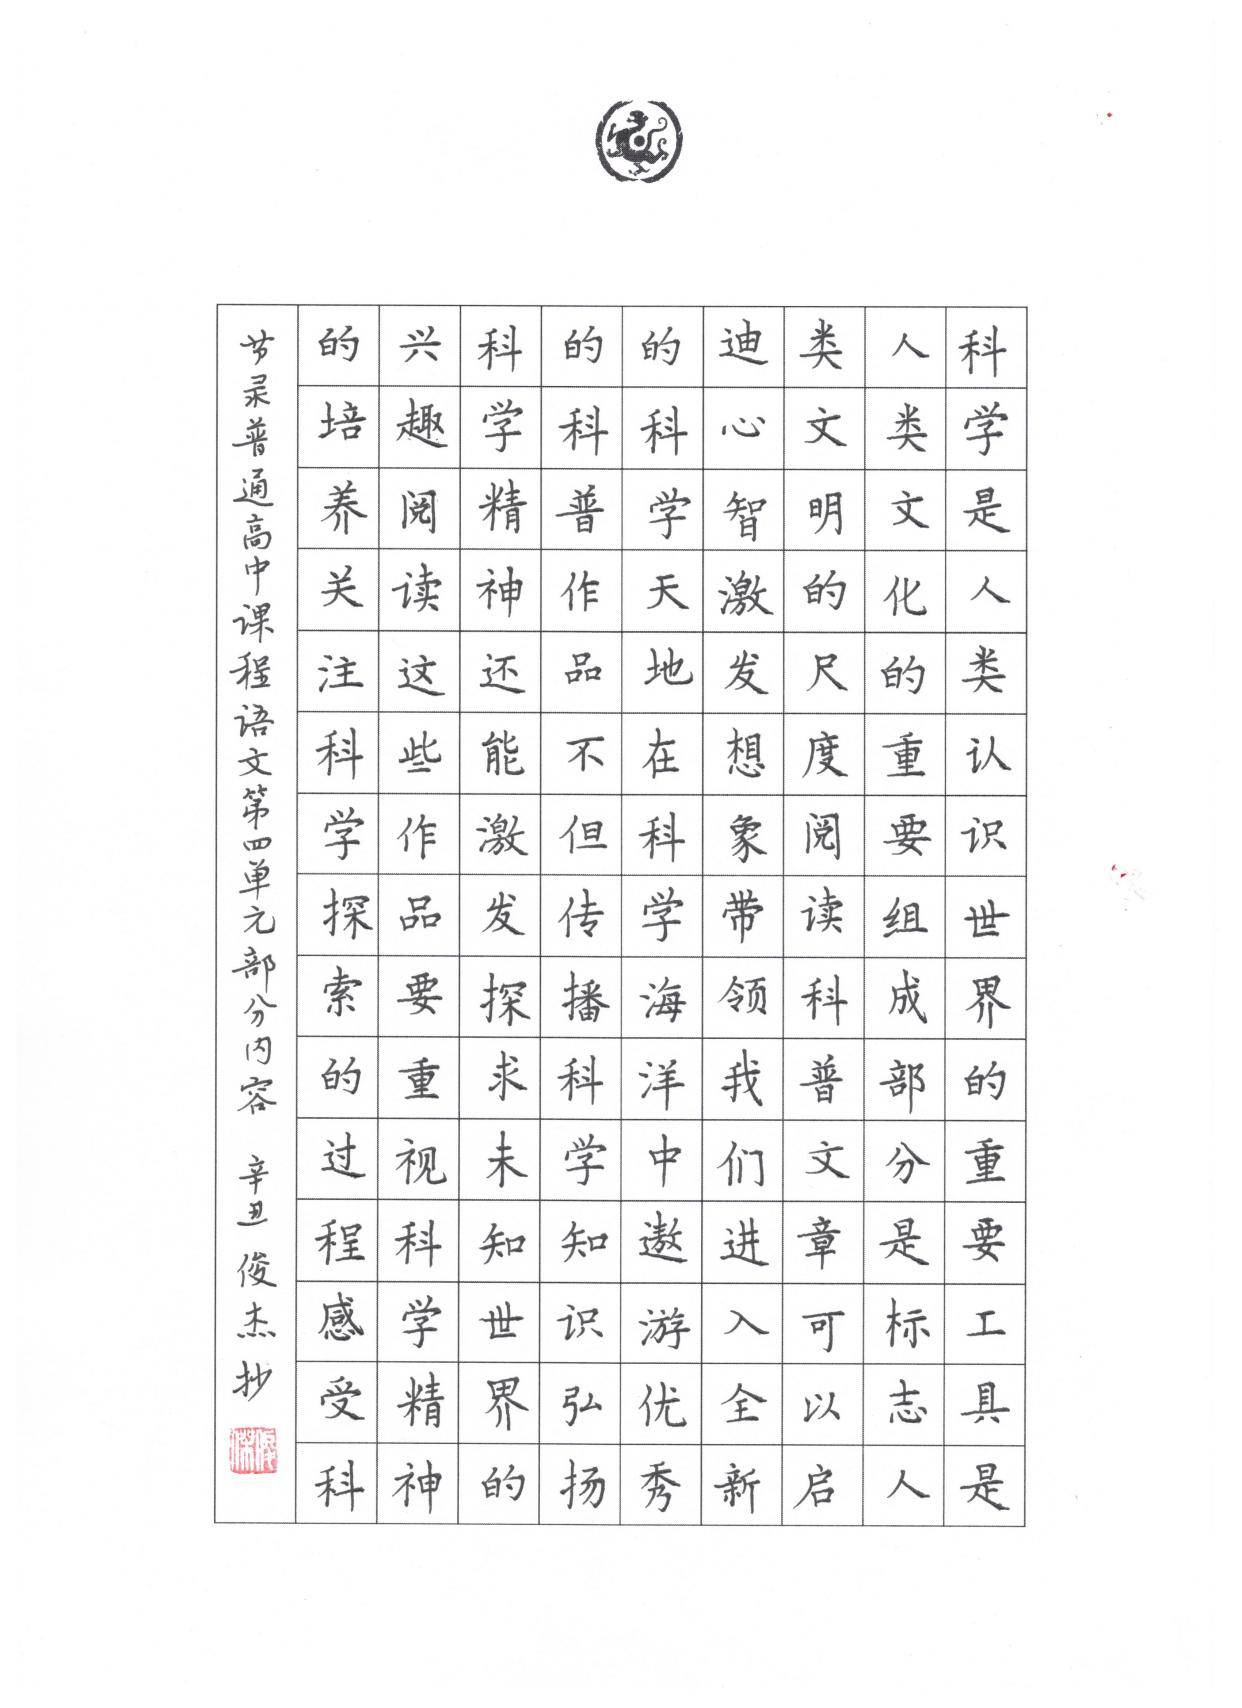 科学是人类认识世界的重要工具是
人类文化的重要组成部分是标志人
类文明的尺度阅读科普文章可以启
迪心智激发想象带领我们进入全新
的科学天地在科学海洋中遨游优秀
的科普作品不但传播科学知识弘扬
科学精神还能激发探求未知世界的
兴趣阅读这些作品要重视科学精神
的培养关注科学探索的过程感受科
节录普通高中课程语文第四单元部分内容 辛丑 俊杰抄